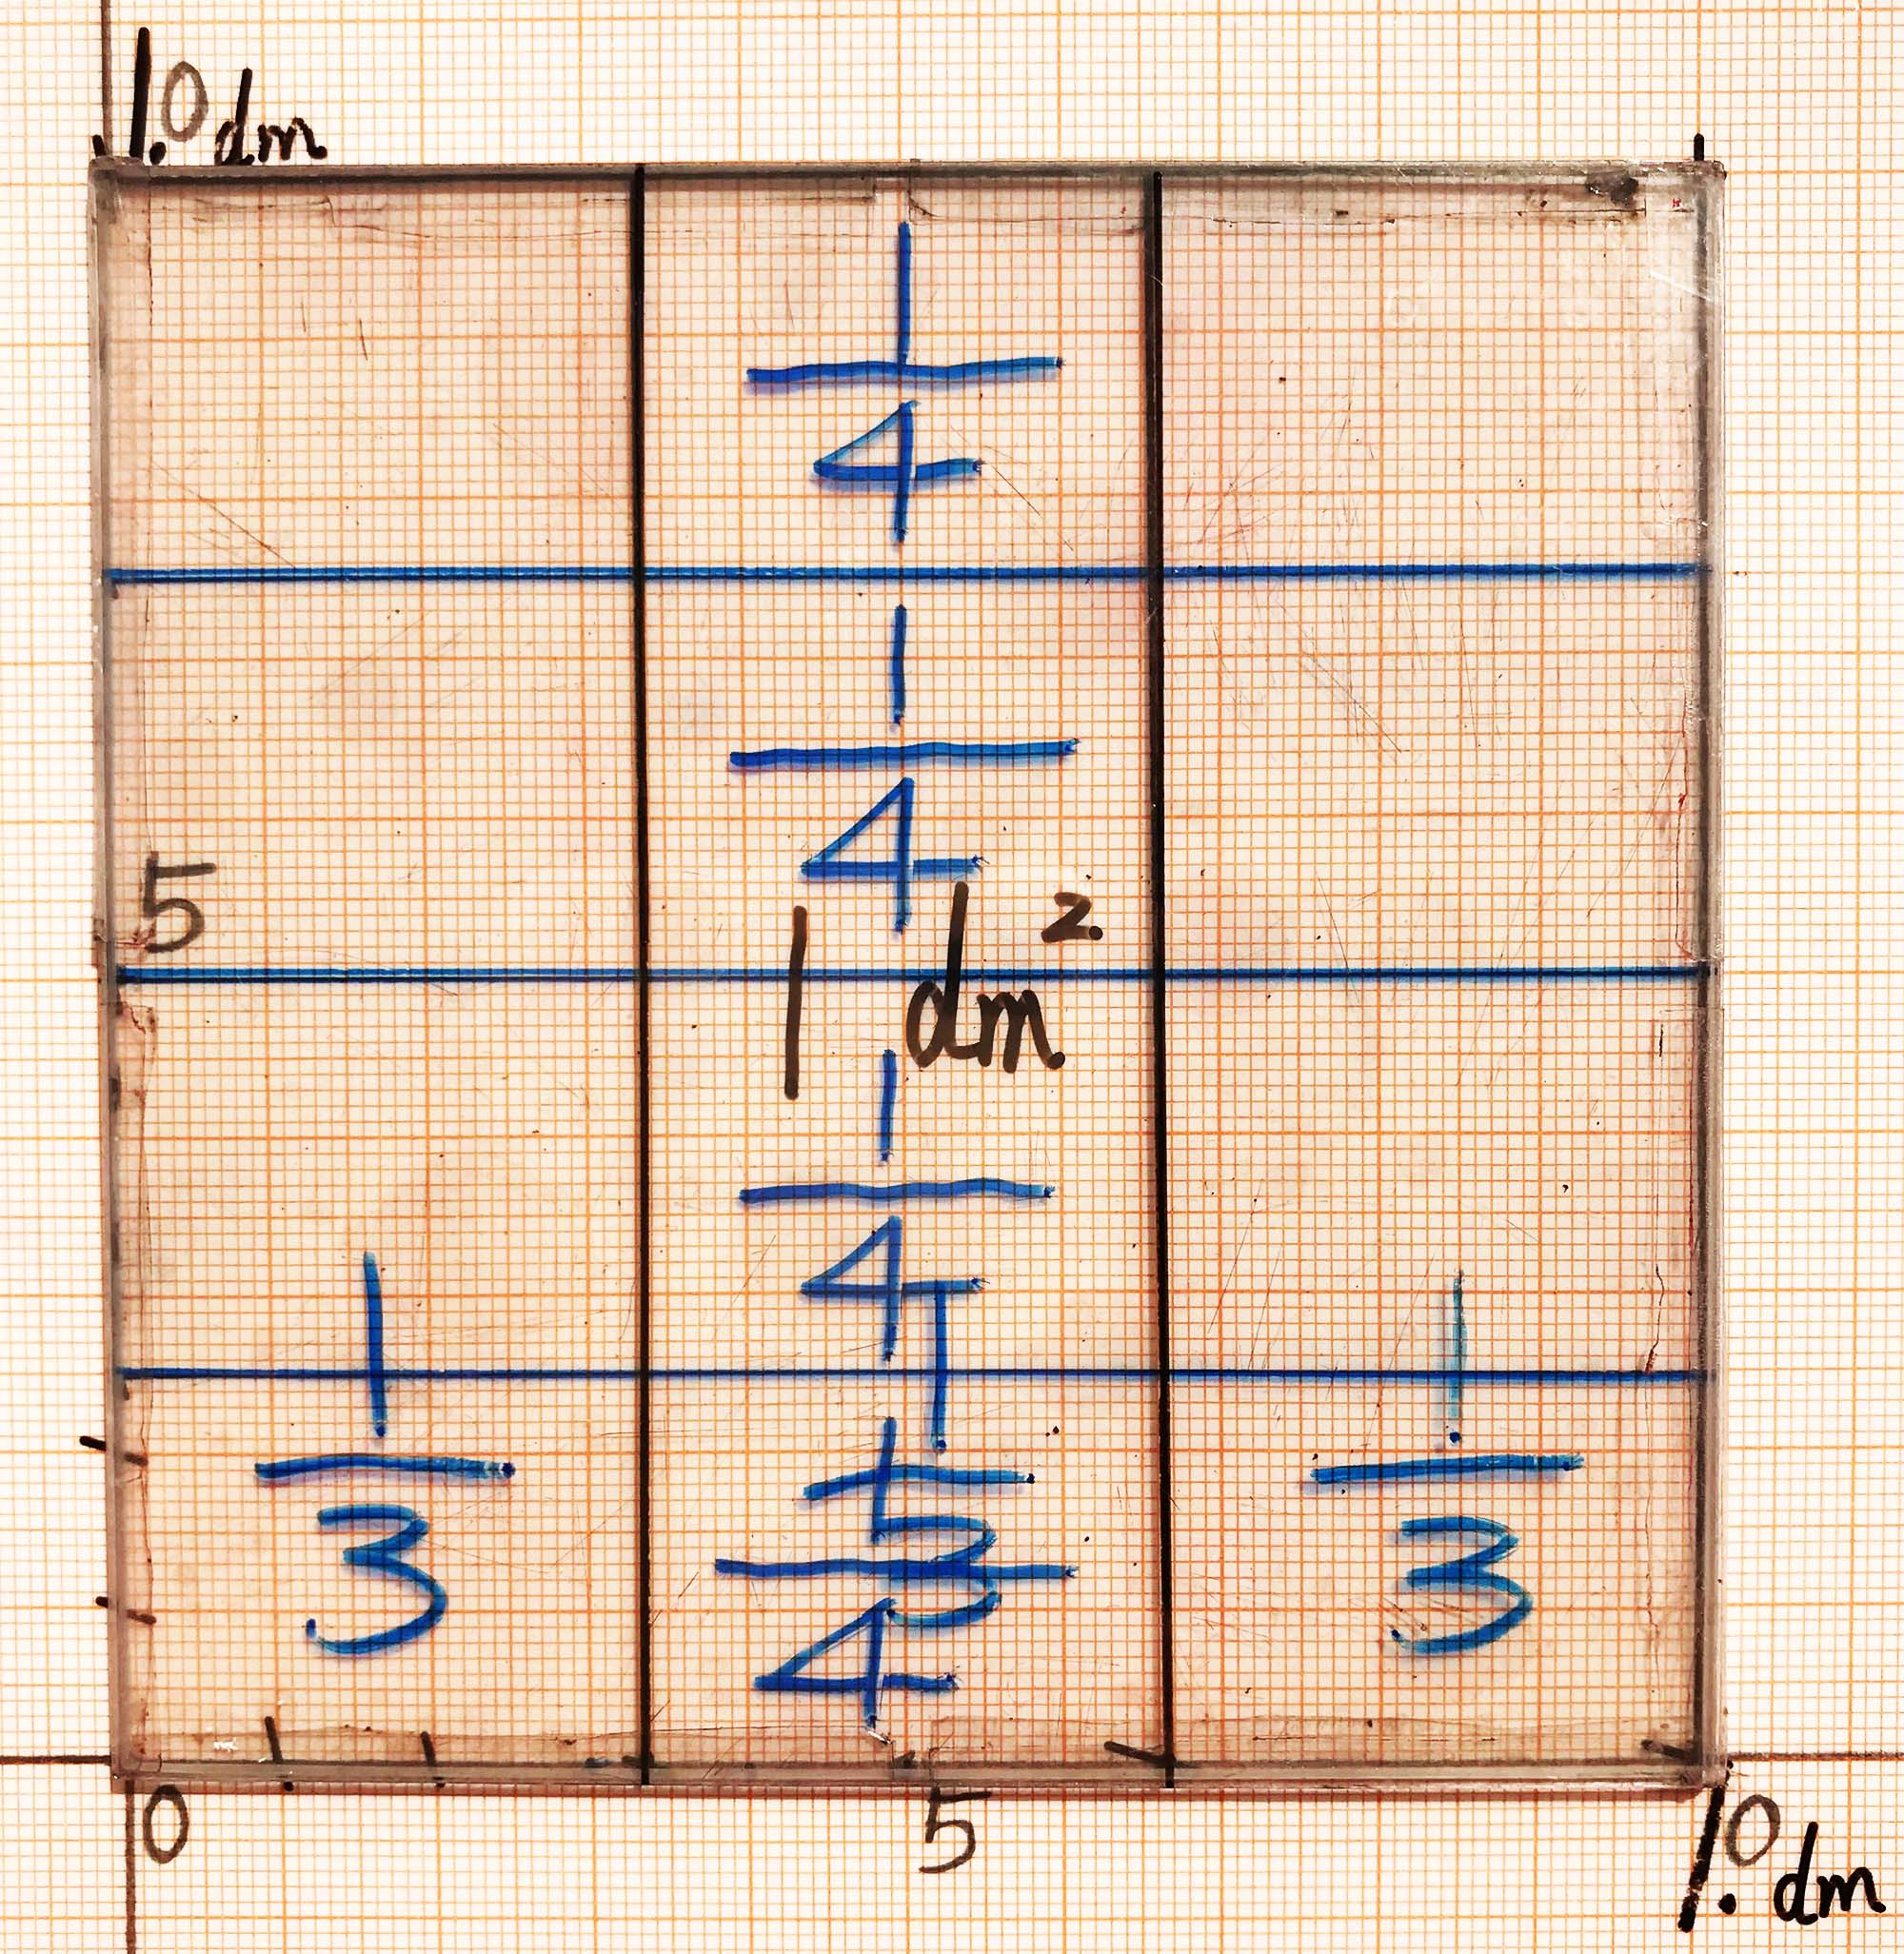 1.0 dm
1/4
1/4
5
1 dm².
1/4
1/3 1/3 1/3
1/4
0 5 1.0 dm